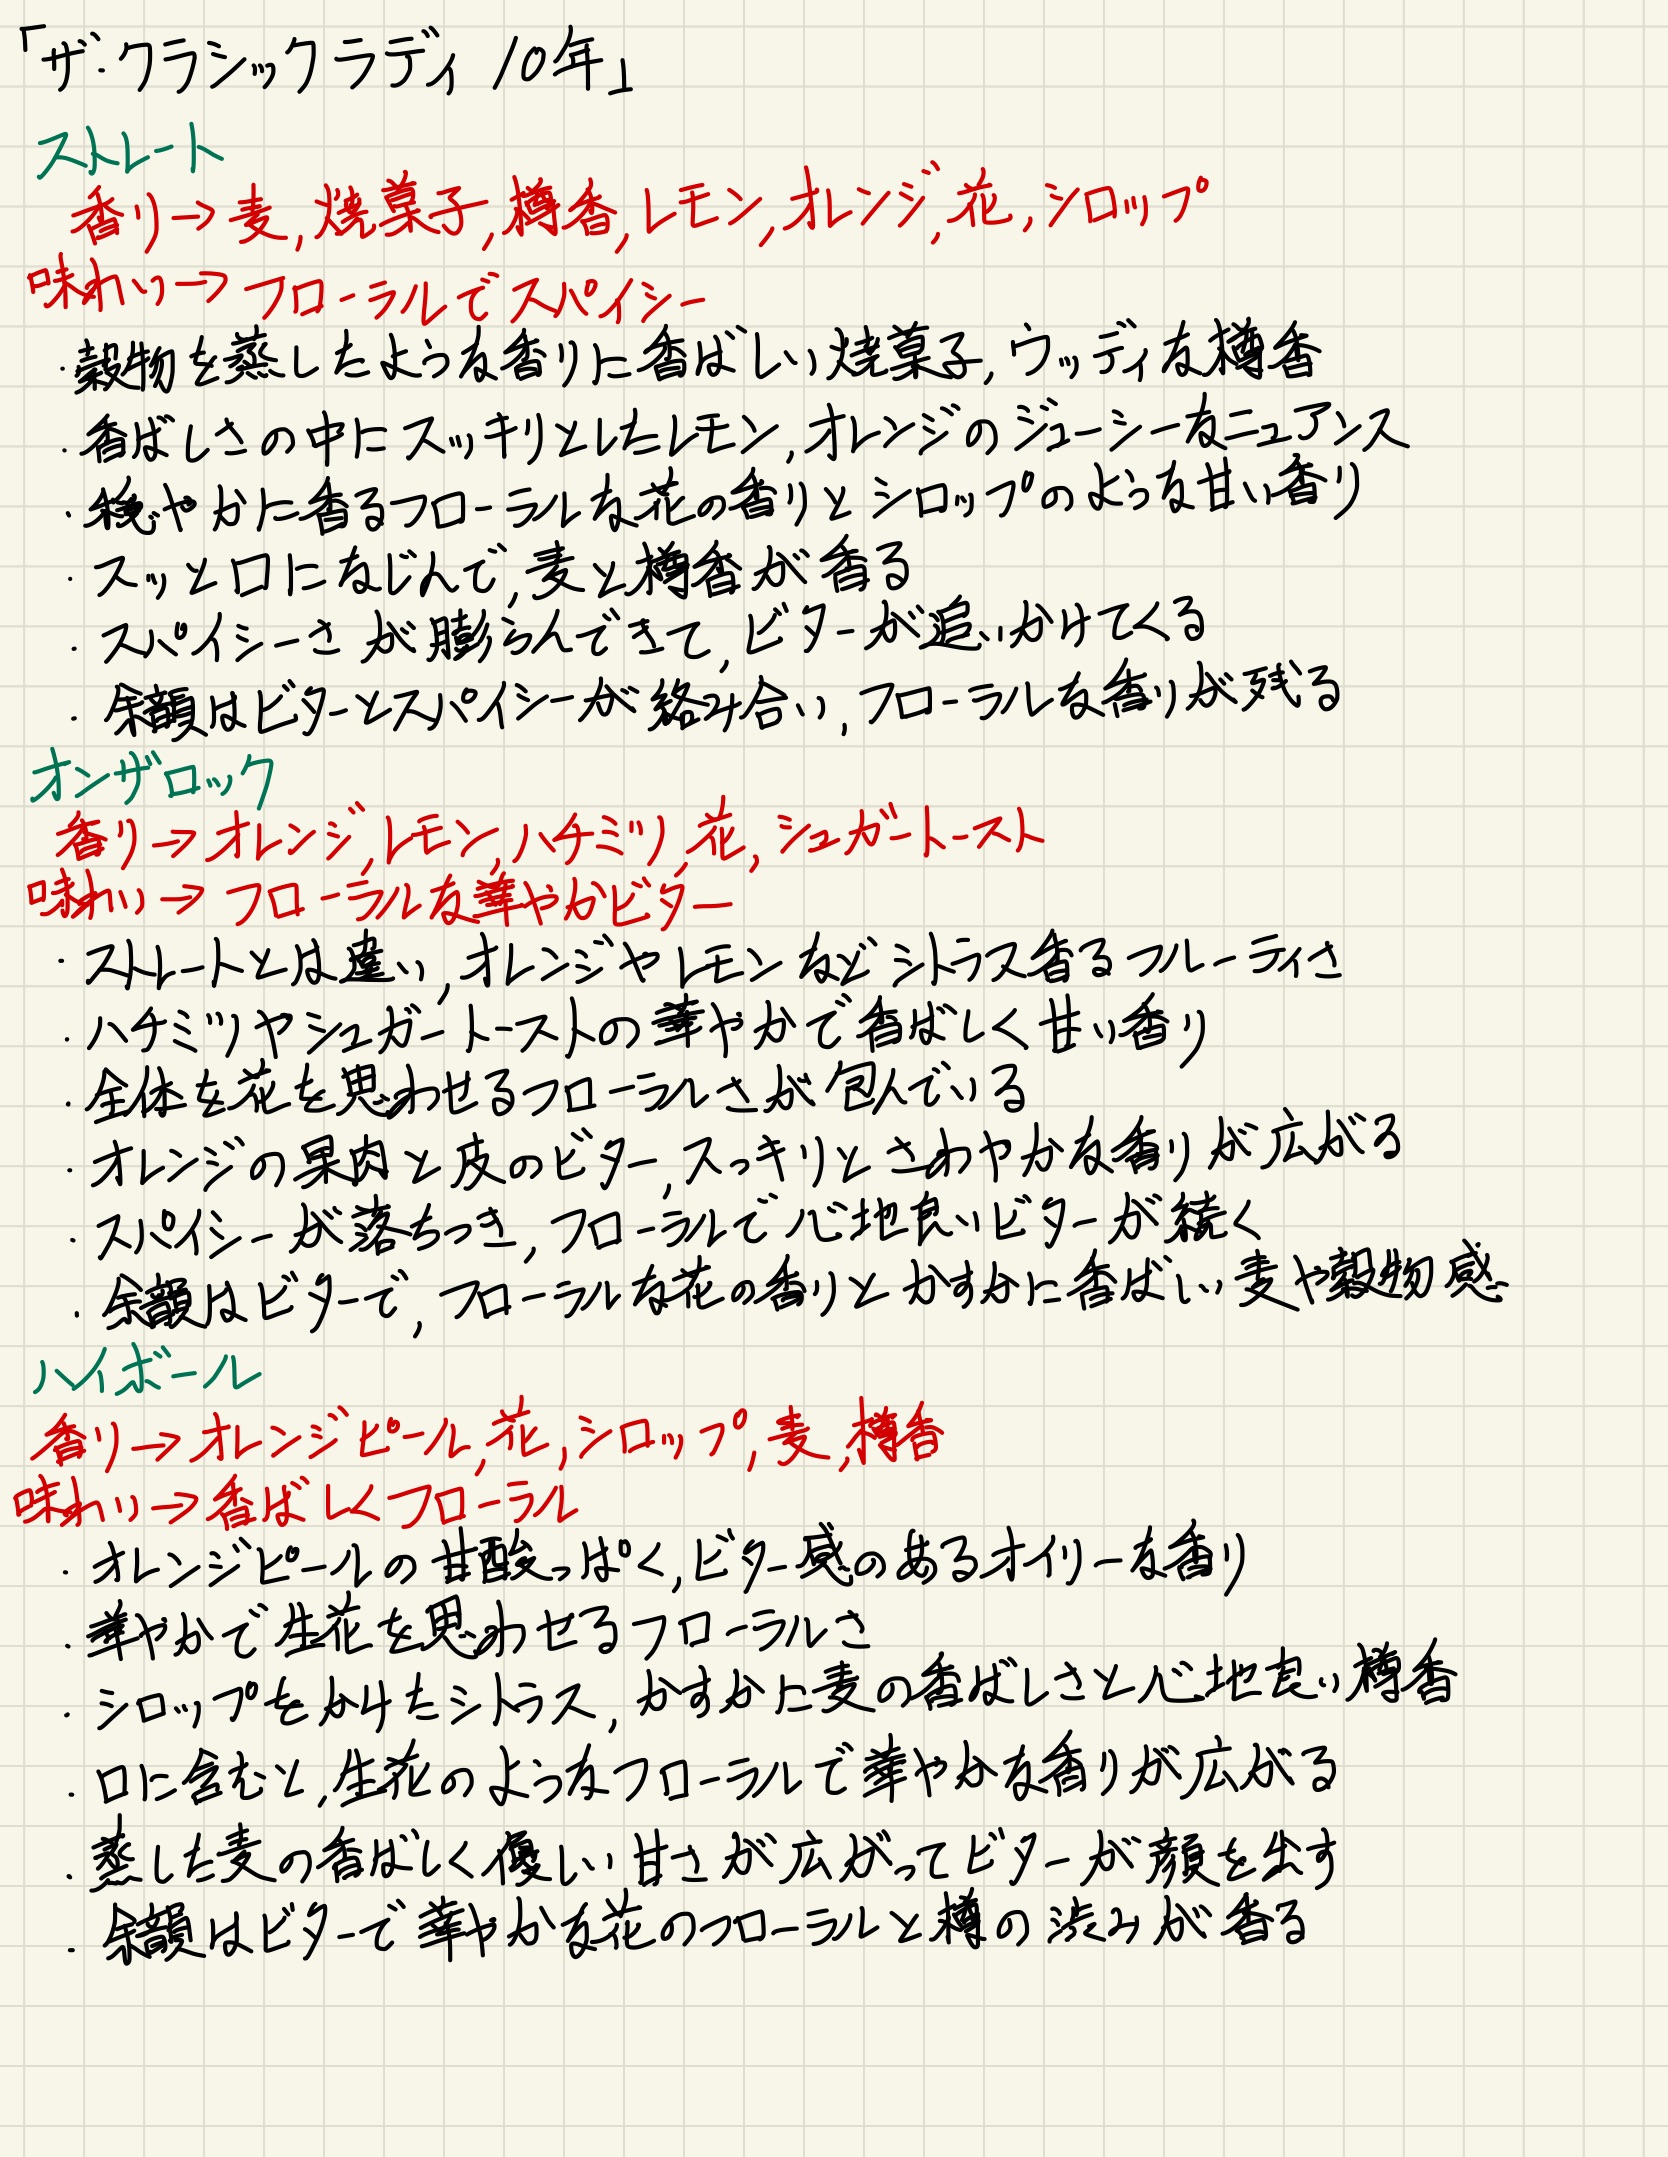 「ザ・クラシックラディ 10年」
ストレート
香り→麦,焼菓子,樽香,レモン,オレンジ,花,シロップ
味わい→フローラルでスパイシー
・穀物を蒸したような香りに香ばしい焼菓子,ウッディな樽香
・香ばしさの中にスッキリとしたレモン,オレンジのジューシーなニュアンス
・穏やかに香るフローラルな花の香りとシロップのような甘い香り
・スッと口になじんで,麦と樽香が香る
・スパイシーさが膨らんできて,ビターが追いかけてくる
・余韻はビターとスパイシーが絡み合い,フローラルな香りが残る
オンザロック
香り→オレンジ,レモン,ハチミツ,花,シュガートースト
味わい→フローラルな華やかビター
・ストレートとは違い,オレンジやレモンなどシトラス香るフルーティさ
・ハチミツやシュガートーストの華やかで香ばしく甘い香り
・全体を花を思わせるフローラルさが包んでいる
・オレンジの果肉と皮のビター,スっキリとさわやかな香りが広がる
・スパイシーが落ちつき,フローラルで心地良いビターが続く
・余韻はビターで,フローラルな花の香りとかすかに香ばしい麦や穀物感
ハイボール
香り→オレンジピール,花,シロップ,麦,樽香
味わい→香ばしくフローラル
・オレンジピールの甘酸っぱく,ビター感のあるオイリーな香り
・華やかで生花を思わせるフローラルさ
・シロップをかけたシトラス,かすかに麦の香ばしさと心地良い樽香
・口に含むと,生花のようなフローラルで華やかな香りが広がる
・蒸した麦の香ばしく優しい甘さが広がってビターが顔を出す
・余韻はビターで華やかな花のフローラルと樽の渋みが香る